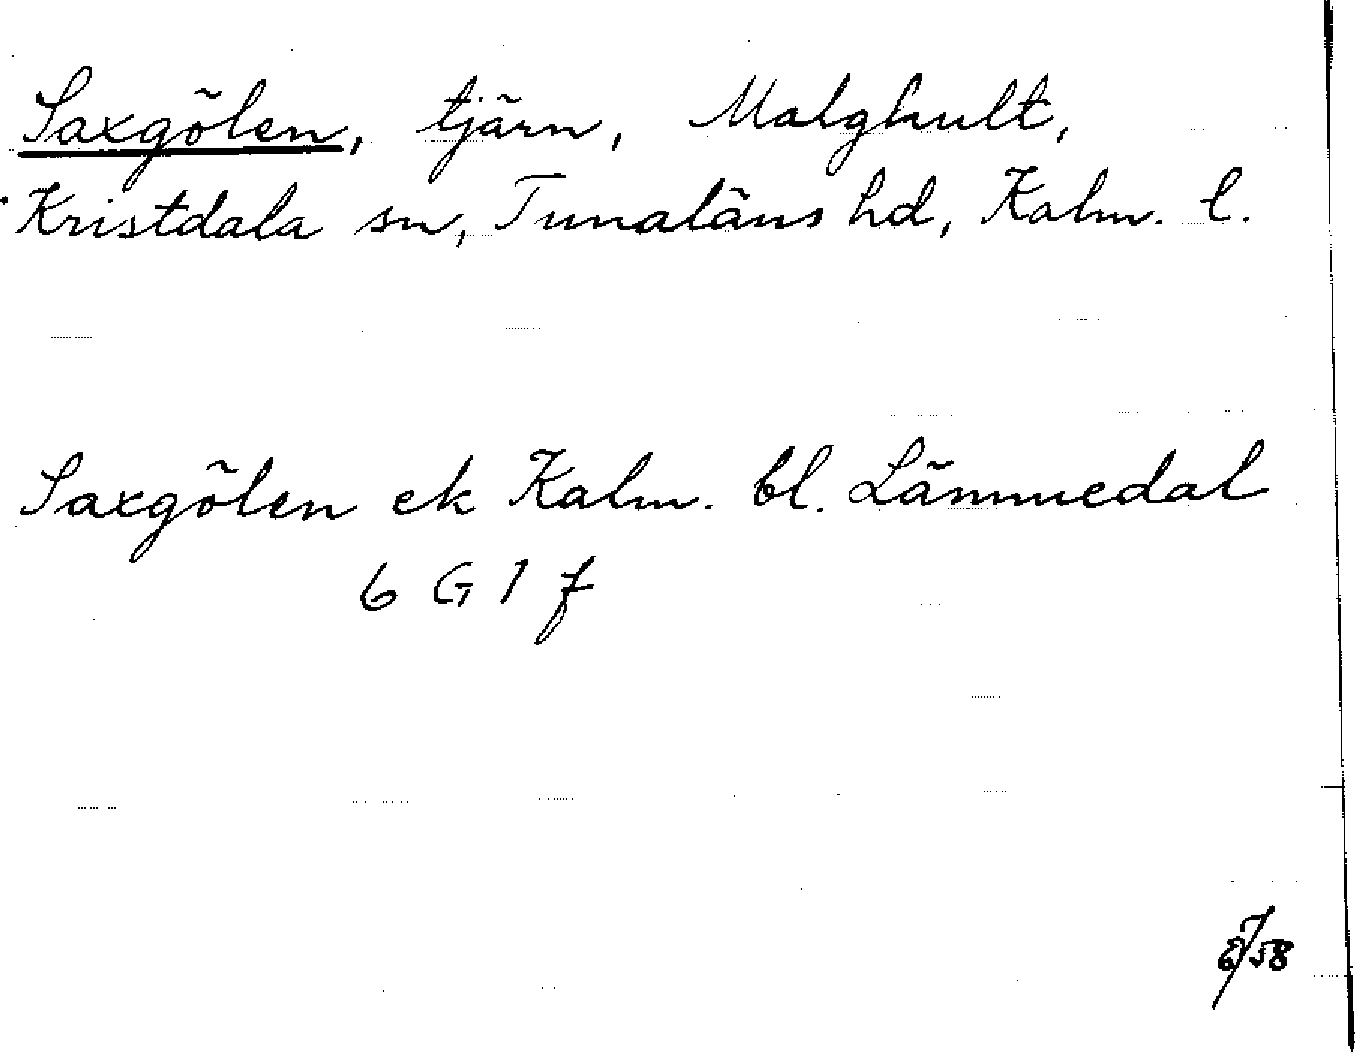 Saxgölen, tjärn, Malghult,
Kristdala sn, Tunaläns hd, Kalm. l.
Saxgölen ek Kalm. bl. Lämmedal
6 G 1 f